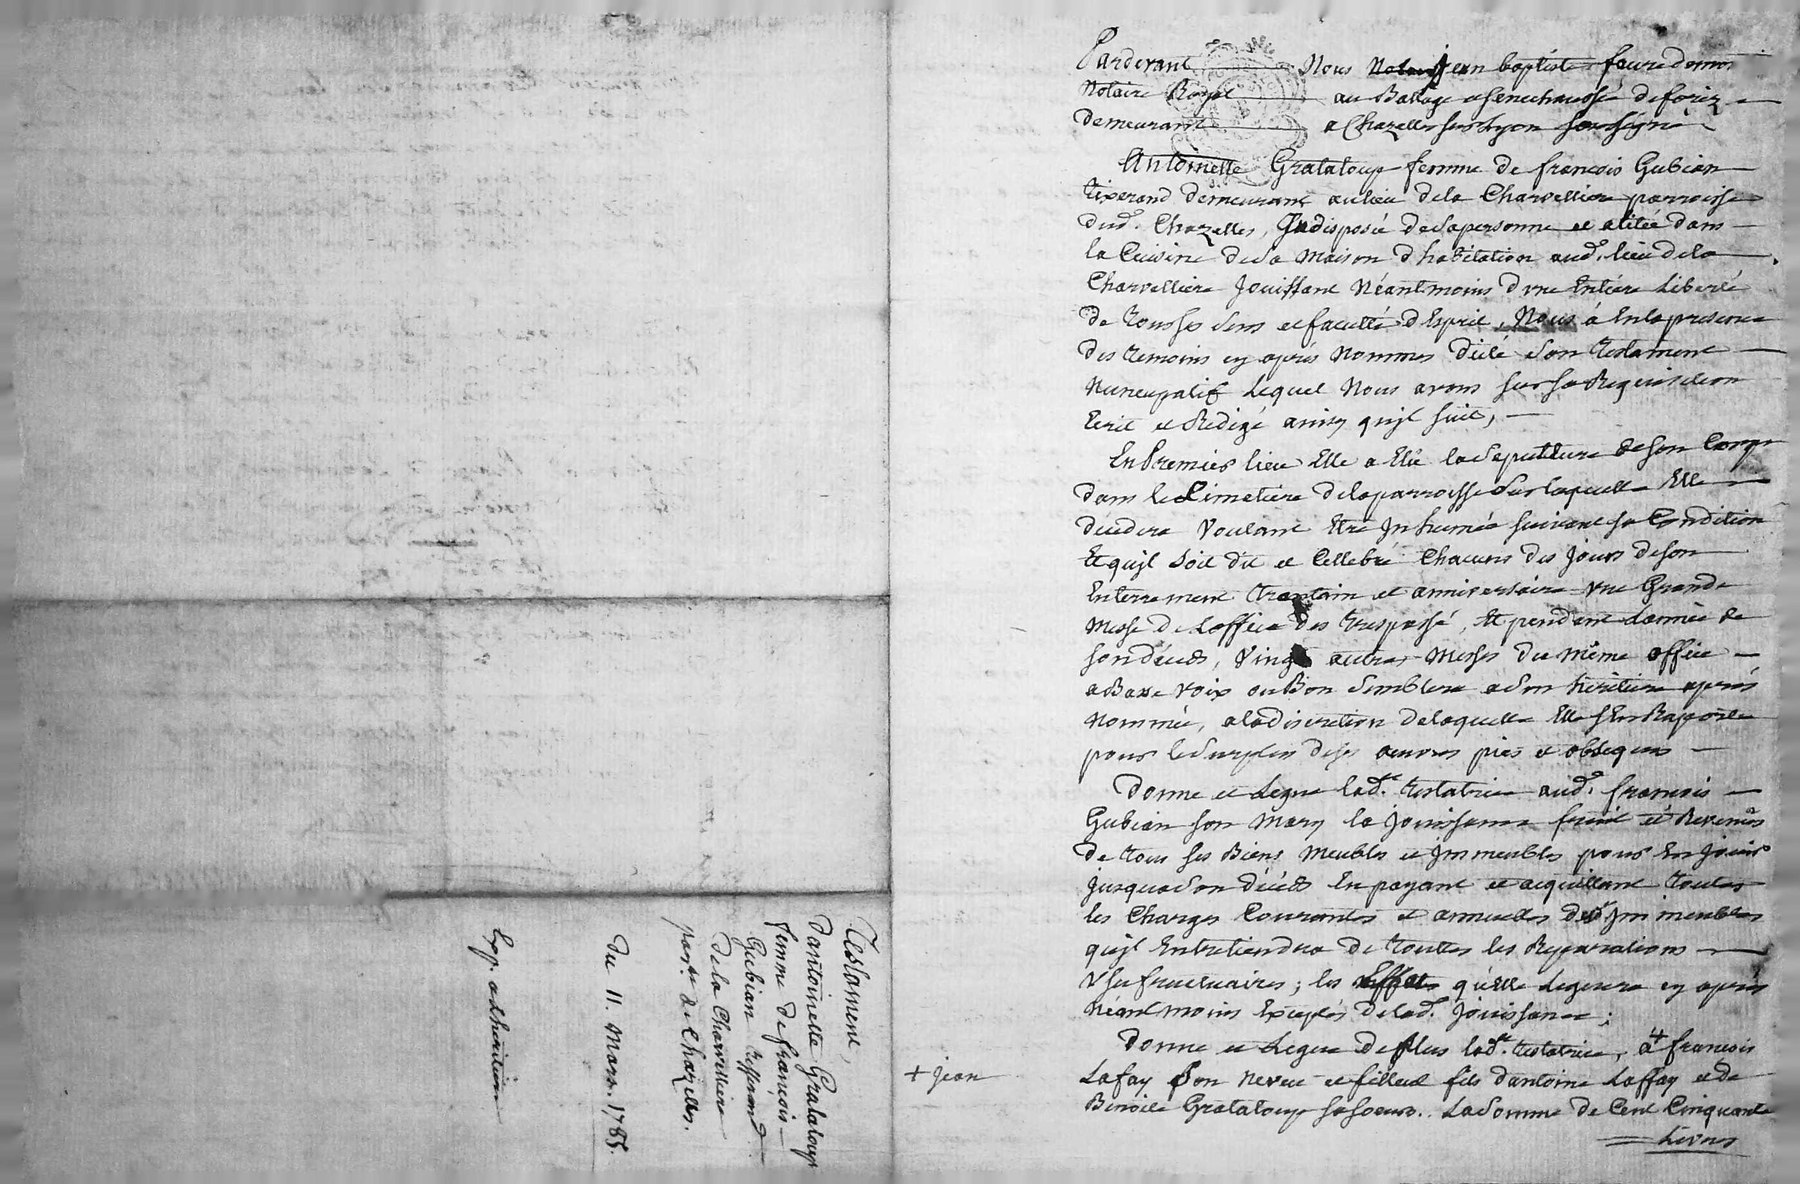 Testament,
Dantoinette Grataloup
femme de françois
Gubian Tisserand
de la Charvelliere
parr. de Chazelles.
Du 11. Mars. 1785.
Exp. a lheritiere
Pardevant Nous Jean baptiste faure
Notaire Royal au Baillage et senechaussé de forez
demeurant a Chazelles sur Lyon soussigné
Antoinette Grataloup femme de francois Gubian
Tixerand demeurant au lieu de la Charvelliere parroisse
dud. Chazelles, Indisposée de sa personne et alitée dans
la Cuisine de sa maison d'habitation aud. lieu de la
Charvelliere Jouissant Néantmoins d'une Entiere Liberté
de tous ses sens et faculté d'Esprit, Nous à En la presence
des temoins cy après nommes dicté son testament
Nuncupatif Lequel Nous avons sur sa Requisition
Ecrit et Redigé ainsy qu'jl suit,
En Premier lieu Elle a Elû la sepulture de son Corps
dans le Cimetiere de la parroisse sur laquelle Elle
decedera Voulant Etre Inhumée suivant sa Condition
Et qu'jl soit dit et Cellebré Chacuns des Jours de son
Enterrement trantain et anniversaire une Grande
Messe de Loffice des trespassé, Et pendant Lannée de
son décéds, Vingt autres Messes du même office
a Basse Voix ou Bon Semblera a son heritiere après
Nommée, a la discretion de laquelle Elle s'En Raporte
pour le surplus de ses œuvres pies et obseques
Donne et Legue lad.e testatrice aud. francois
Gubian son Mary la Jouissance fruit et Revenus
de tous ses Biens Meubles et Immeubles pour En Jouir
Jusqua son décéds En payant et acquittant toutes
les Charges Courantes et annuelles desd. Immeubles
qu'jl Entretiendra de toutes les Reparations
Usufructuaires; les Effets qu'Elle Leguera cy après
Néantmoins Exceptés de lad. Jouissance;
Donne et Legue de plus lad.e testatrice, à + francois
Lafay son neveu et filleul fils d'antoine Laffay et de
Benoite Grataloup sa soeur. La somme de Cent Cinquante
Livres
+ Jean